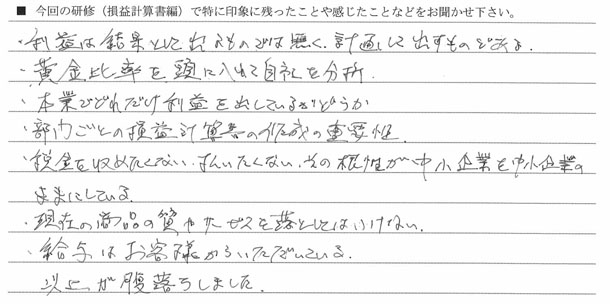 ■ 今回の研修（損益計算書編）で特に印象に残ったことや感じたことなどをお聞かせ下さい。
・利益は結果として出るものでは無く、計画して出すものである。
・黄金比率を頭に入れて自社を分析.
・本業でどれだけ利益を出しているかどうか
・部門ごとの損益計算書の作成の重要性.
・税金を収めたくない、 その根性が中小企業を中小企業の
ままにしている.
・現在の商品の質やサービスを落としてはいけない.
・給与はお客様からいただいている.
以上が腹落ちしました.